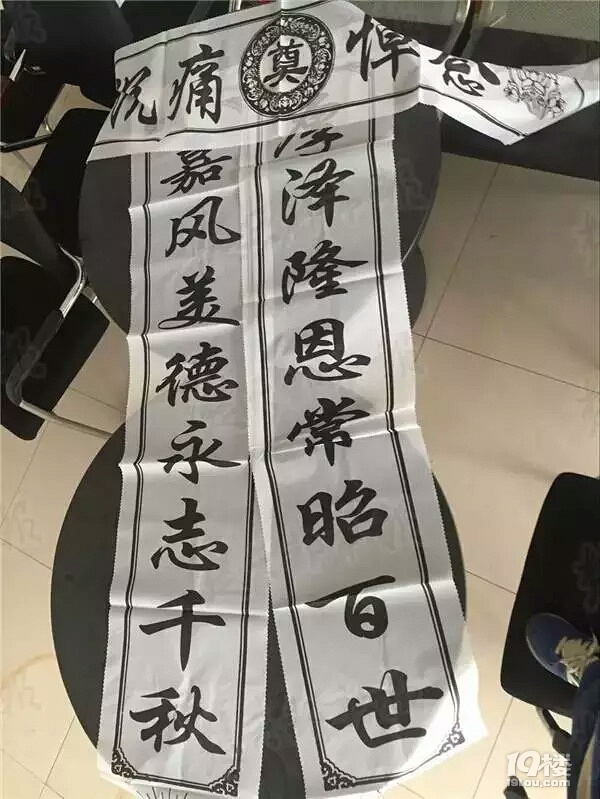 沉痛奠悼念
厚泽隆恩常昭百世
嘉风美德永志千秋
19楼
19lou.com